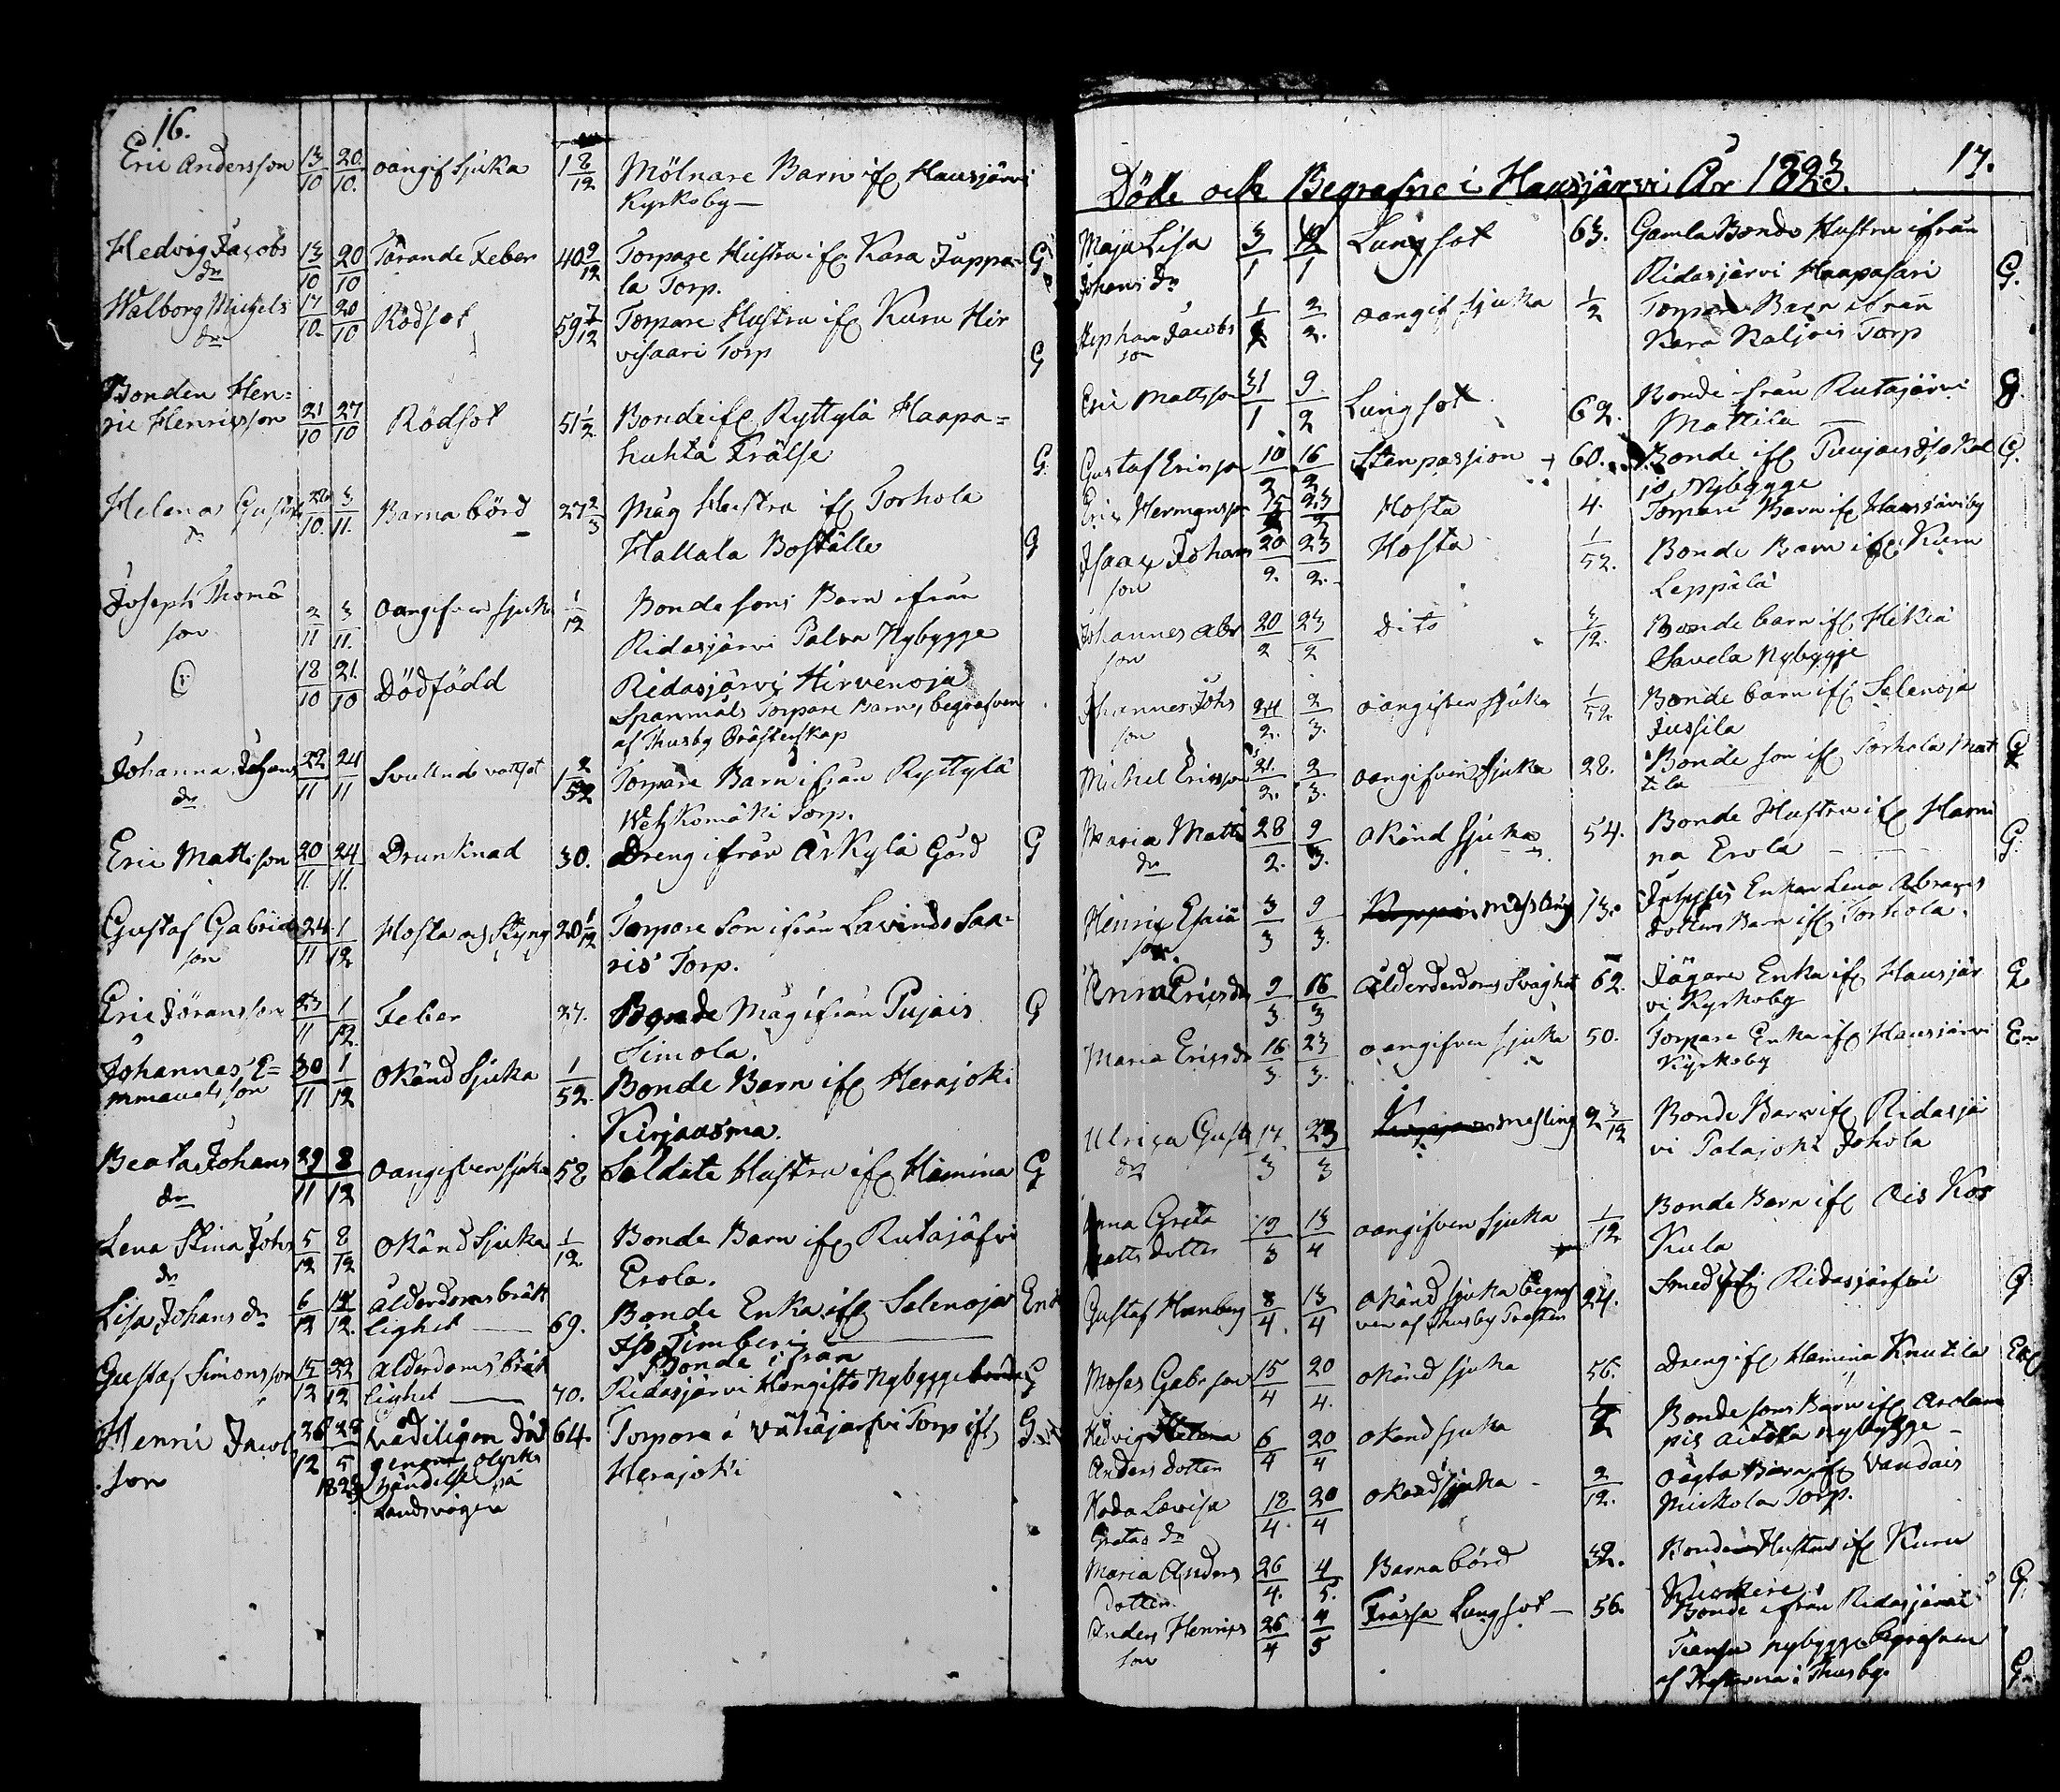 16.
Eric Andersson 13/10 20/10. oangif sjuka 1 8/12 Mölnare Barn ifr Hausjärvi
Kyrkoby —
Hedvig Jacobs 13/10 20/10 Tärande Feber 40 9/12 Torpare Hustru ifr Kara Juppa- G
dr la Torp.
Walborg Michels 17/10 20/10 Rödsot 59 7/12 Torpare Hustru ifr Kuru Hir
dr visaari Torp G
Bonden Hen=
ric Henricsson 21/10 27/10 Rödsot 51 1/2 Bonde ifr Ryttylä Haapa=
huhta Frälse G
Helena Gustafs 10. 3/11. Barna börd 27 2/3 Måg Hustru ifr Torhola
dr Hallala Boställe G
Joseph Thomæ 2/11 3/11. oangifven sjuka 1/12 Bonde sons Barn ifrån
son Ridasjärvi Palva Nybygge
18/10 21./10 Dödfödd Ridasjärvi Hirvenoja
Spanmåls Torpare Barn, begrafven
af Thusby Prästerskap
Johanna Johans 22/11 24/11 Svullnd vattsot 1 Torpare Barn ifrån Ryttylä
dr Torp.
Eric Mattsson 20/11. 24/11. Drunknad 30. Dreng ifrån Erkylä Gård G
Gustaf Gabriels 24/11 1/12 Hosta och Styng 20 1/12 Torpare Son ifrån Lavinds Saa-
son ris Torp.
Eric Jöransson 23/11 1/12. Feber 27. Bonde Måg ifrån Pujais G
Simola.
Johannes E= 30/11 1/12 okänd sjuka 1/52. Bonde Barn ifr Herajoki
mmanuelsson Kirjausma.
Beata Johans 29/11 8/12 oangifven sjuka 58 Soldate Hustru ifr Hamina G
dr
Lena Stina Johs 5/12 8/12 okänd sjuka 1/12. Bonde Barn ifr Rutajäfvi
dr Erola.
Lisa Johans dr 6/12 ålderdoms bräk Bonde Enka ifr Selenoja Enk
lighet — 69. Iso Timberi
Gustaf Simonsson 15/12 22/12 ålderdoms bräk Bonde ifrån
lighet — 70. Ridasjärvi Hongisto Nybygge G
Henric Jacobs 26/12 28/5 våderligen död 64. Torpare å Vähäjärfvi Torp ifr G
son 1823 genom olycks Herajoki
händelse på
Landsvägen
17.
Döde och Begrafne i Hausjärvi År 1823.
Maja Lisa 3/1 12/1 Lungsot 63. Gamla Bonde Hustru ifrån
Johans dr Ridasjärvi Haapasari G.
Stephan Jacobs 1/2 2/2. oangif sjuka 1/2 Torpare Barn ifrån
son Kara Kaljois Torp
Eric Mattsson 31/1 9/2 Lungsot 62. Bonde ifrån Rutajärvi G.
Mattila —
Gustaf Ericsson 10/2 16/2 Stenpassion 60. Bonde ifr Tuujais Isokal G.
io, Nybygge
Eric Hermansson 15/2 23/2 Hosta 4. Torpare Barn ifr Hausjärviby
Isaac Johans 20/2. 23/2. Hosta 1/52. Bonde Barn ifr Kuru
son Leppälä
Johannes Abr 20/2 23/2 Dito 3/12. Bonde barn ifr Hikiä
son Savela Nybygge
Johannes Johs 24/2. 2/3. oangifven sjuka 1/52 Bonde barn ifr Selenoja
son Jussila
Michel Ericsson 21./2. 2/3. oangifven sjuka 28. Bonde son ifr Torhola Mat G
tila
Maria Matts 28/2. 9/3. okänd sjuka 54. Bonde Hustru ifr Hami
dr na Erola G.
Henric Esaiæ 3/3 9/3. mesling 13. Enkan Lena Abrams
son. dotters Barn ifr Torhola.
Anna Ericsdr 9/3. 16/3 Ålderdoms Svaghet 62. Jägare Enka ifr Hausjär E
vi Kyrkoby
Maria Ericsdr 16/3. 23/3. oangifven sjuka 50. Torpare Enka ifr Hausjärvi En
Kyrkoby
Ulrica Gust 17/3 23/3 mesling 2 3/12 Bonde Barn ifr Ridasjär
dr vi Palajoki Jokola
Anna Greta 19/3 13/4 oangifven sjuka 1/12 Bonde Barn ifr Ois Kos
Matts dotter Kula
Gustaf Hamberg 8/4. 13/4 okänd sjuka Begraf 24. Smed ifr Ridasjärfvi G
ven af Thusby Presten
Moses Gabrson 15/4 20/4. okänd sjuka 56. Dreng ifr Hamina Knutila Enk
Hedvig Helena 6/4 20/4 okänd sjuka Bonde sons Barn ifr Arolam
Anders dotter pis Aitola nybygge —
Hoda Lovisa 18/4. 20/4 okänd sjuka 2/12. oägta Barn ifr Vandais
Gretas dr Mickola Torp.
Maria Anders 26/4. 4/5. Barnabörd 32. Bonde Hustru ifr Kuru
dotter G.
Anders Henrics 26/4 4/5 Frossa Lungsot — 56. Bonde ifrån Ridasjärvi
son nybygge Begrafven
af Presterna i Thusby. G.